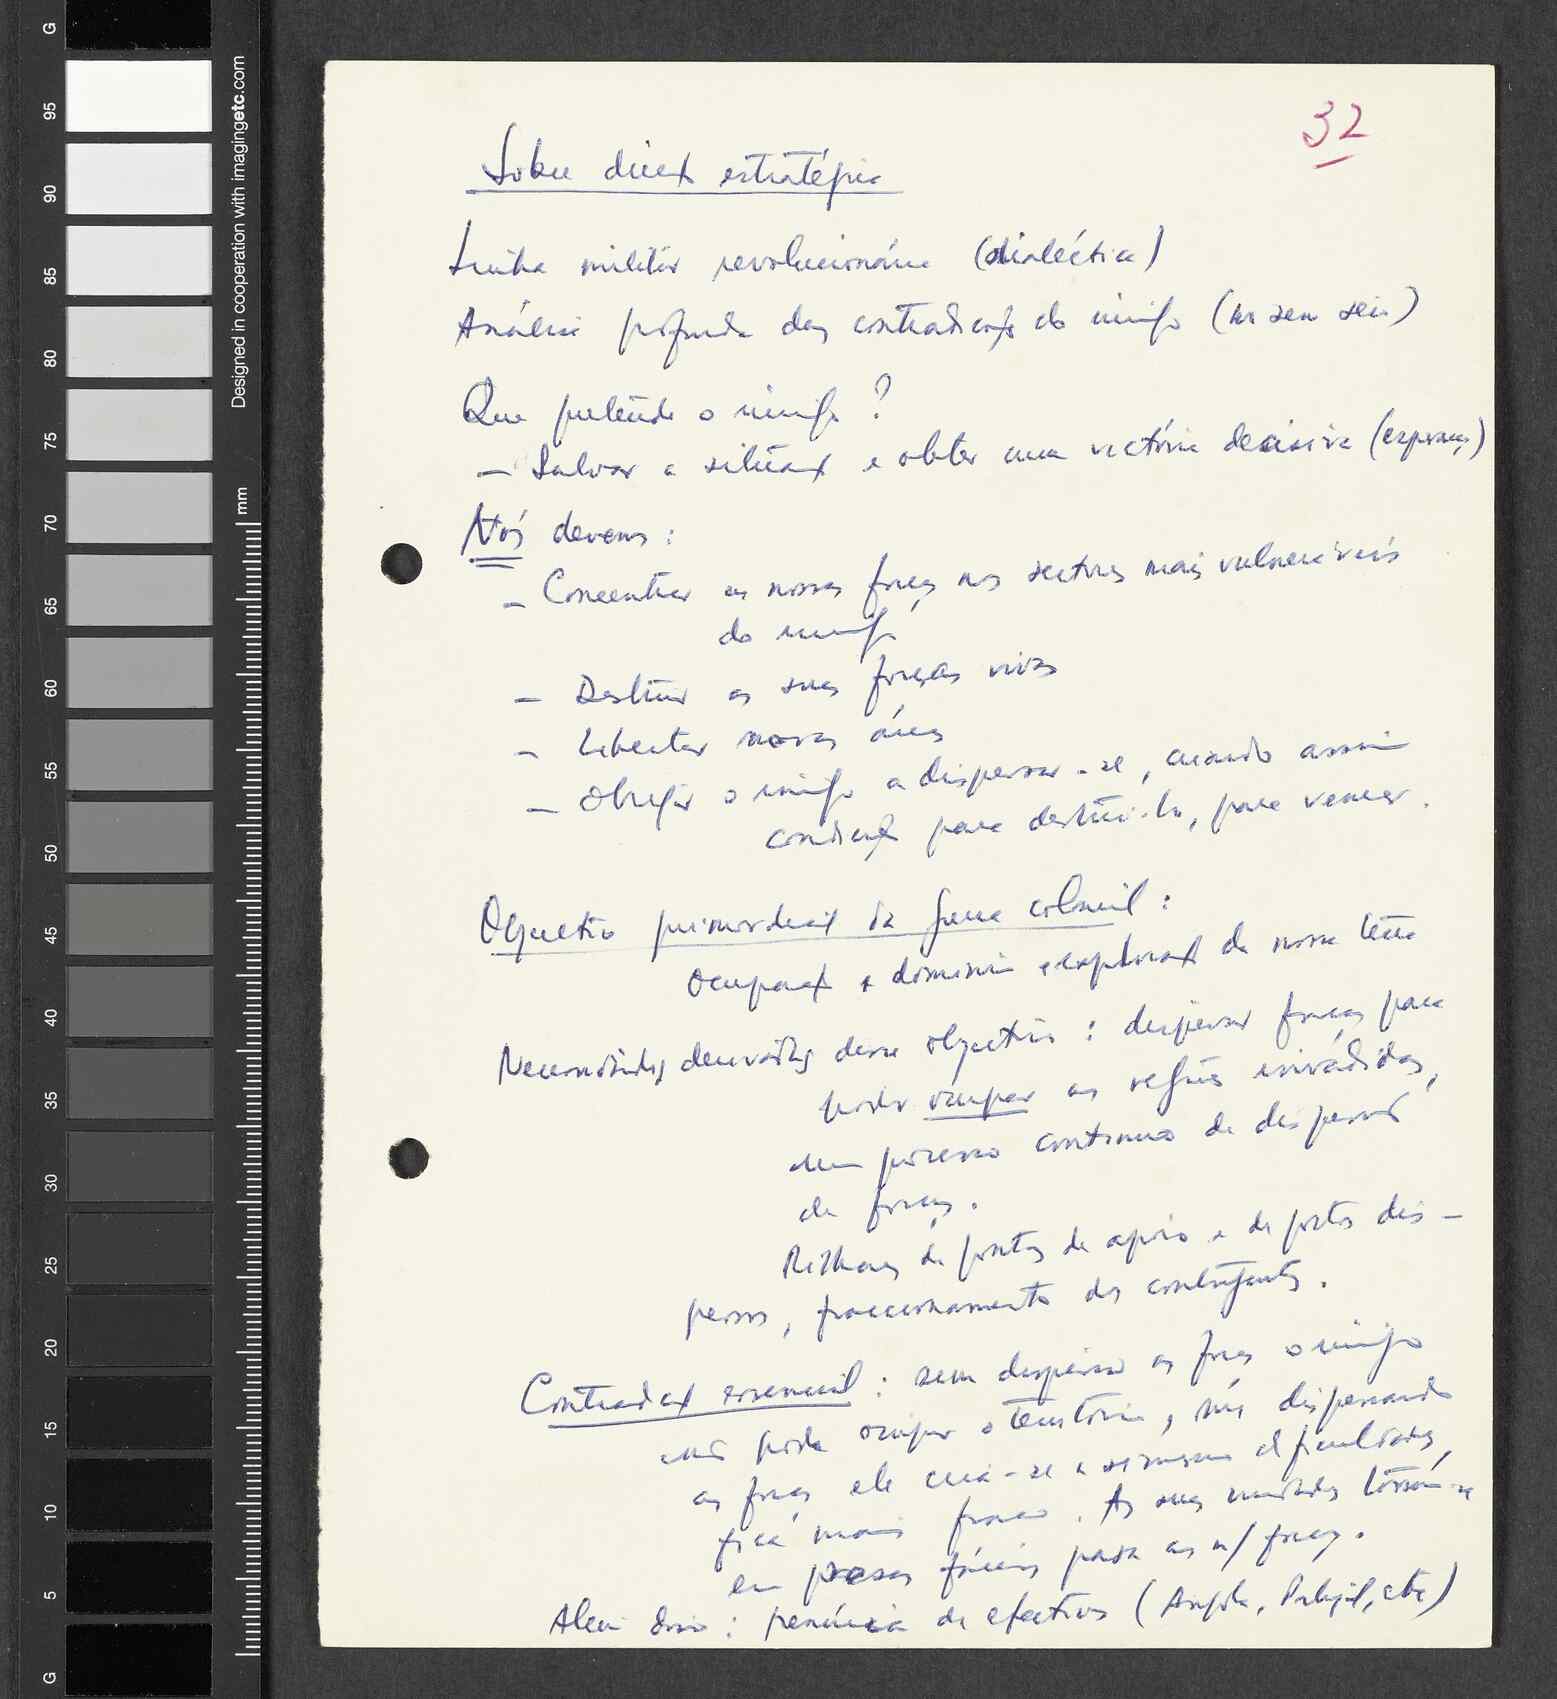 32
Sobre direcç estratégica
Linha militar revolucionária (dialéctica)
Análise profunda das contradições do inimigo (no seu seio)
Que pretende o inimigo?
— Salvar a situaç e obter uma victória decisiva (esperanç)
Nós devemos:
— Concentrar as nossas forças nos sectores mais vulneráveis
do inimigo
— Destruir as suas forças vivas
— Libertar novas áreas
— Obrigar o inimigo a dispersar-se, criando assim
condições para destruí-lo, para vencer.
Objectivo primordial da guerra colonial:
Ocupaç e domínio e exploraç da nossa terra
Necessidades derivadas desse objectivo: dispersar forças para
poder ocupar as regiões invadidas,
num processo contínuo de dispersão
de forças.
Milhares de pontos de apoio e de postos dis-
persos, fraccionamento dos contingentes.
Contradiç essencial: sem dispersar as forças o inimigo
não pode ocupar o território, mas dispersando
as forças ele cria-se a si mesmo dificuldades,
fica mais fraco. As suas unidades tornam-se
em presas fáceis para as n/ forças.
Alem disso: penúria de efectivos (Angola, Portugal, etc)
Designed in cooperation with imagingetc.com
mm
G
95
90
85
80
75
70
65
60
55
50
45
40
35
30
25
20
15
10
5
G